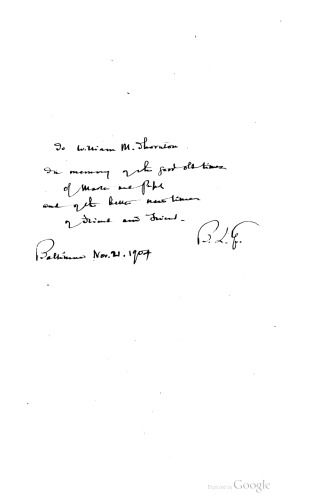 To William M. Thornton
In memory of the good old times
of Master and Pupil
and of the better new times
of Friend and Friend.
B. L. G.
Baltimore Nov. 21. 1907
Digitized by Google